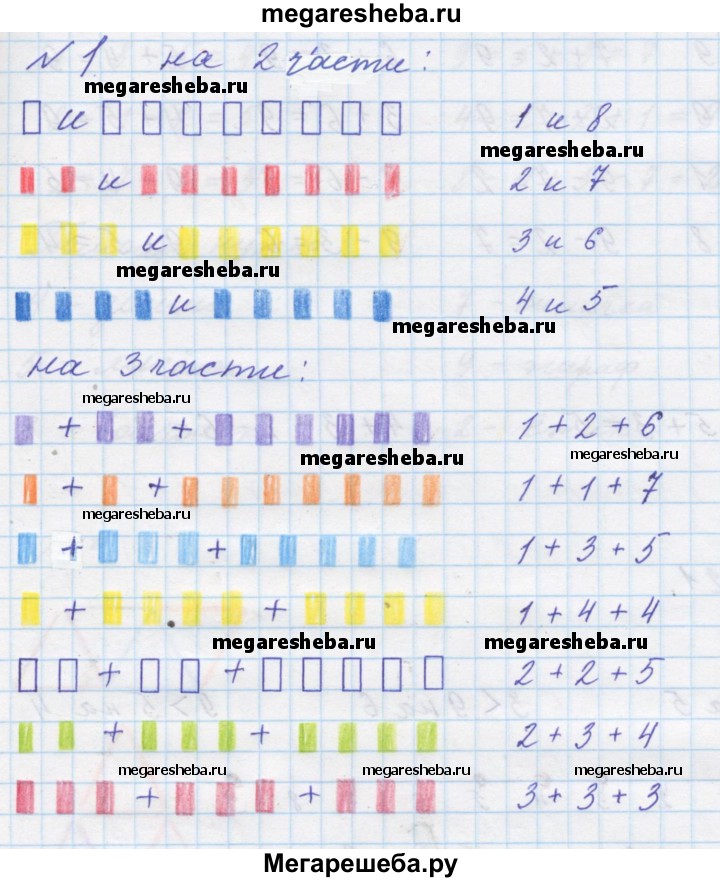 megaresheba.ru
№ 1 на 2 части:
megaresheba.ru
и 1 и 8
megaresheba.ru
и 2 и 7
и 3 и 6
megaresheba.ru
и 4 и 5
megaresheba.ru
на 3 части:
megaresheba.ru
+ + 1 + 2 + 6
megaresheba.ru megaresheba.ru
+ + 1 + 1 + 7
megaresheba.ru
+ + 1 + 3 + 5
+ + 1 + 4 + 4
megaresheba.ru megaresheba.ru
+ + 2 + 2 + 5
+ + 2 + 3 + 4
megaresheba.ru megaresheba.ru megaresheba.ru
+ + 3 + 3 + 3
Мегарешеба.ру